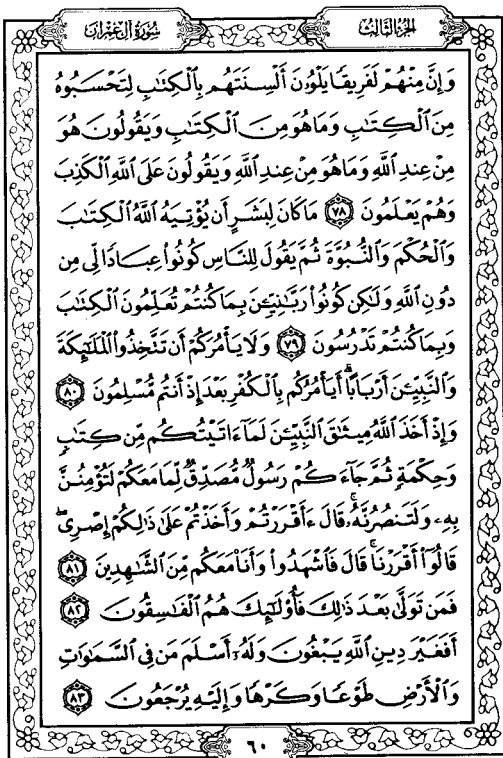 الجزء الثالث
سُورَةُ آلِ عِمْرَانَ
وَإِنَّ مِنْهُمْ لَفَرِيقًا يَلْوُۥنَ أَلْسِنَتَهُم بِٱلْكِتَٰبِ لِتَحْسَبُوهُ
مِنَ ٱلْكِتَٰبِ وَمَا هُوَ مِنَ ٱلْكِتَٰبِ وَيَقُولُونَ هُوَ
مِنْ عِندِ ٱللَّهِ وَمَا هُوَ مِنْ عِندِ ٱللَّهِ وَيَقُولُونَ عَلَى ٱللَّهِ ٱلْكَذِبَ
وَهُمْ يَعْلَمُونَ ٧٨ مَا كَانَ لِبَشَرٍ أَن يُؤْتِيَهُ ٱللَّهُ ٱلْكِتَٰبَ
وَٱلْحُكْمَ وَٱلنُّبُوَّةَ ثُمَّ يَقُولَ لِلنَّاسِ كُونُوا۟ عِبَادًا لِّى مِن
دُونِ ٱللَّهِ وَلَٰكِن كُونُوا۟ رَبَّٰنِيِّۦنَ بِمَا كُنتُمْ تُعَلِّمُونَ ٱلْكِتَٰبَ
وَبِمَا كُنتُمْ تَدْرُسُونَ ٧٩ وَلَا يَأْمُرَكُمْ أَن تَتَّخِذُوا۟ ٱلْمَلَٰٓئِكَةَ
وَٱلنَّبِيِّۦنَ أَرْبَابًا ۗ أَيَأْمُرُكُم بِٱلْكُفْرِ بَعْدَ إِذْ أَنتُم مُّسْلِمُونَ ٨٠
وَإِذْ أَخَذَ ٱللَّهُ مِيثَٰقَ ٱلنَّبِيِّۦنَ لَمَآ ءَاتَيْتُكُم مِّن كِتَٰبٍ
وَحِكْمَةٍ ثُمَّ جَآءَكُمْ رَسُولٌ مُّصَدِّقٌ لِّمَا مَعَكُمْ لَتُؤْمِنُنَّ
بِهِۦ وَلَتَنصُرُنَّهُۥ ۚ قَالَ ءَأَقْرَرْتُمْ وَأَخَذْتُمْ عَلَىٰ ذَٰلِكُمْ إِصْرِى ۖ
قَالُوٓا۟ أَقْرَرْنَا ۚ قَالَ فَٱشْهَدُوا۟ وَأَنَا۠ مَعَكُم مِّنَ ٱلشَّٰهِدِينَ ٨١
فَمَن تَوَلَّىٰ بَعْدَ ذَٰلِكَ فَأُو۟لَٰٓئِكَ هُمُ ٱلْفَٰسِقُونَ ٨٢
أَفَغَيْرَ دِينِ ٱللَّهِ يَبْغُونَ وَلَهُۥٓ أَسْلَمَ مَن فِى ٱلسَّمَٰوَٰتِ
وَٱلْأَرْضِ طَوْعًا وَكَرْهًا وَإِلَيْهِ يُرْجَعُونَ ٨٣
٦٠